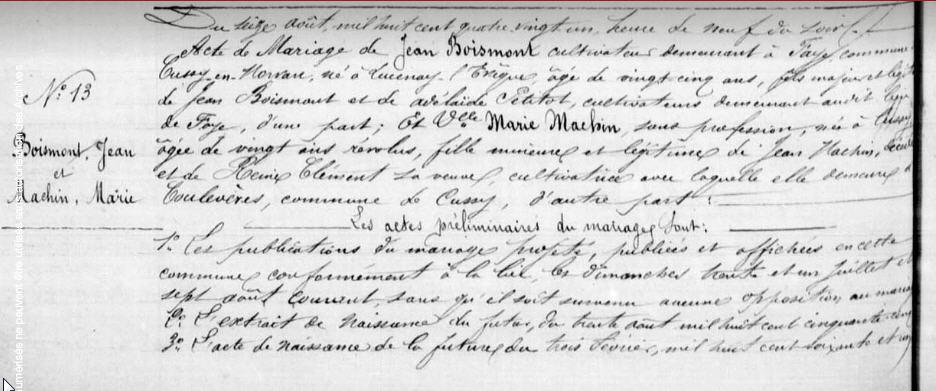 Du seize août, mil huit cent quatre vingt un, heure de neuf du soir
Acte de Mariage de Jean Boismont cultivateur demeurant à Faye, commune
Cussy-en-Morvan, né à Lucenay l'Evêque, âgé de vingt cinq ans, fils majeur et légit
N° 13
de Jean Boismont et de Adélaïde Petitot, cultivateurs demeurant audit lieu
de Faye, d'une part; Et Delle Marie Machin, sans profession, née à Cussy
Boismont, Jean
et
Machin, Marie
âgée de vingt ans revolus, fille mineure et légitime de Jean Machin, décédé
et de Reine Clément sa veuve, cultivatrice avec laquelle elle demeure à
Coulevères, commune de Cussy, d'autre part:
Les actes préliminaires du mariage sont:
1° Les publications du mariage projeté, publiées et affichées en cette
commune conformément à la loi les dimanches trente et un juillet et
sept août courant, sans qu'il soit survenu aucune opposition au mariage
2° L'extrait de naissance du futur, du trente août mil huit cent cinquante cinq
3° L'acte de naissance de la future du trois février, mil huit cent soixante et un